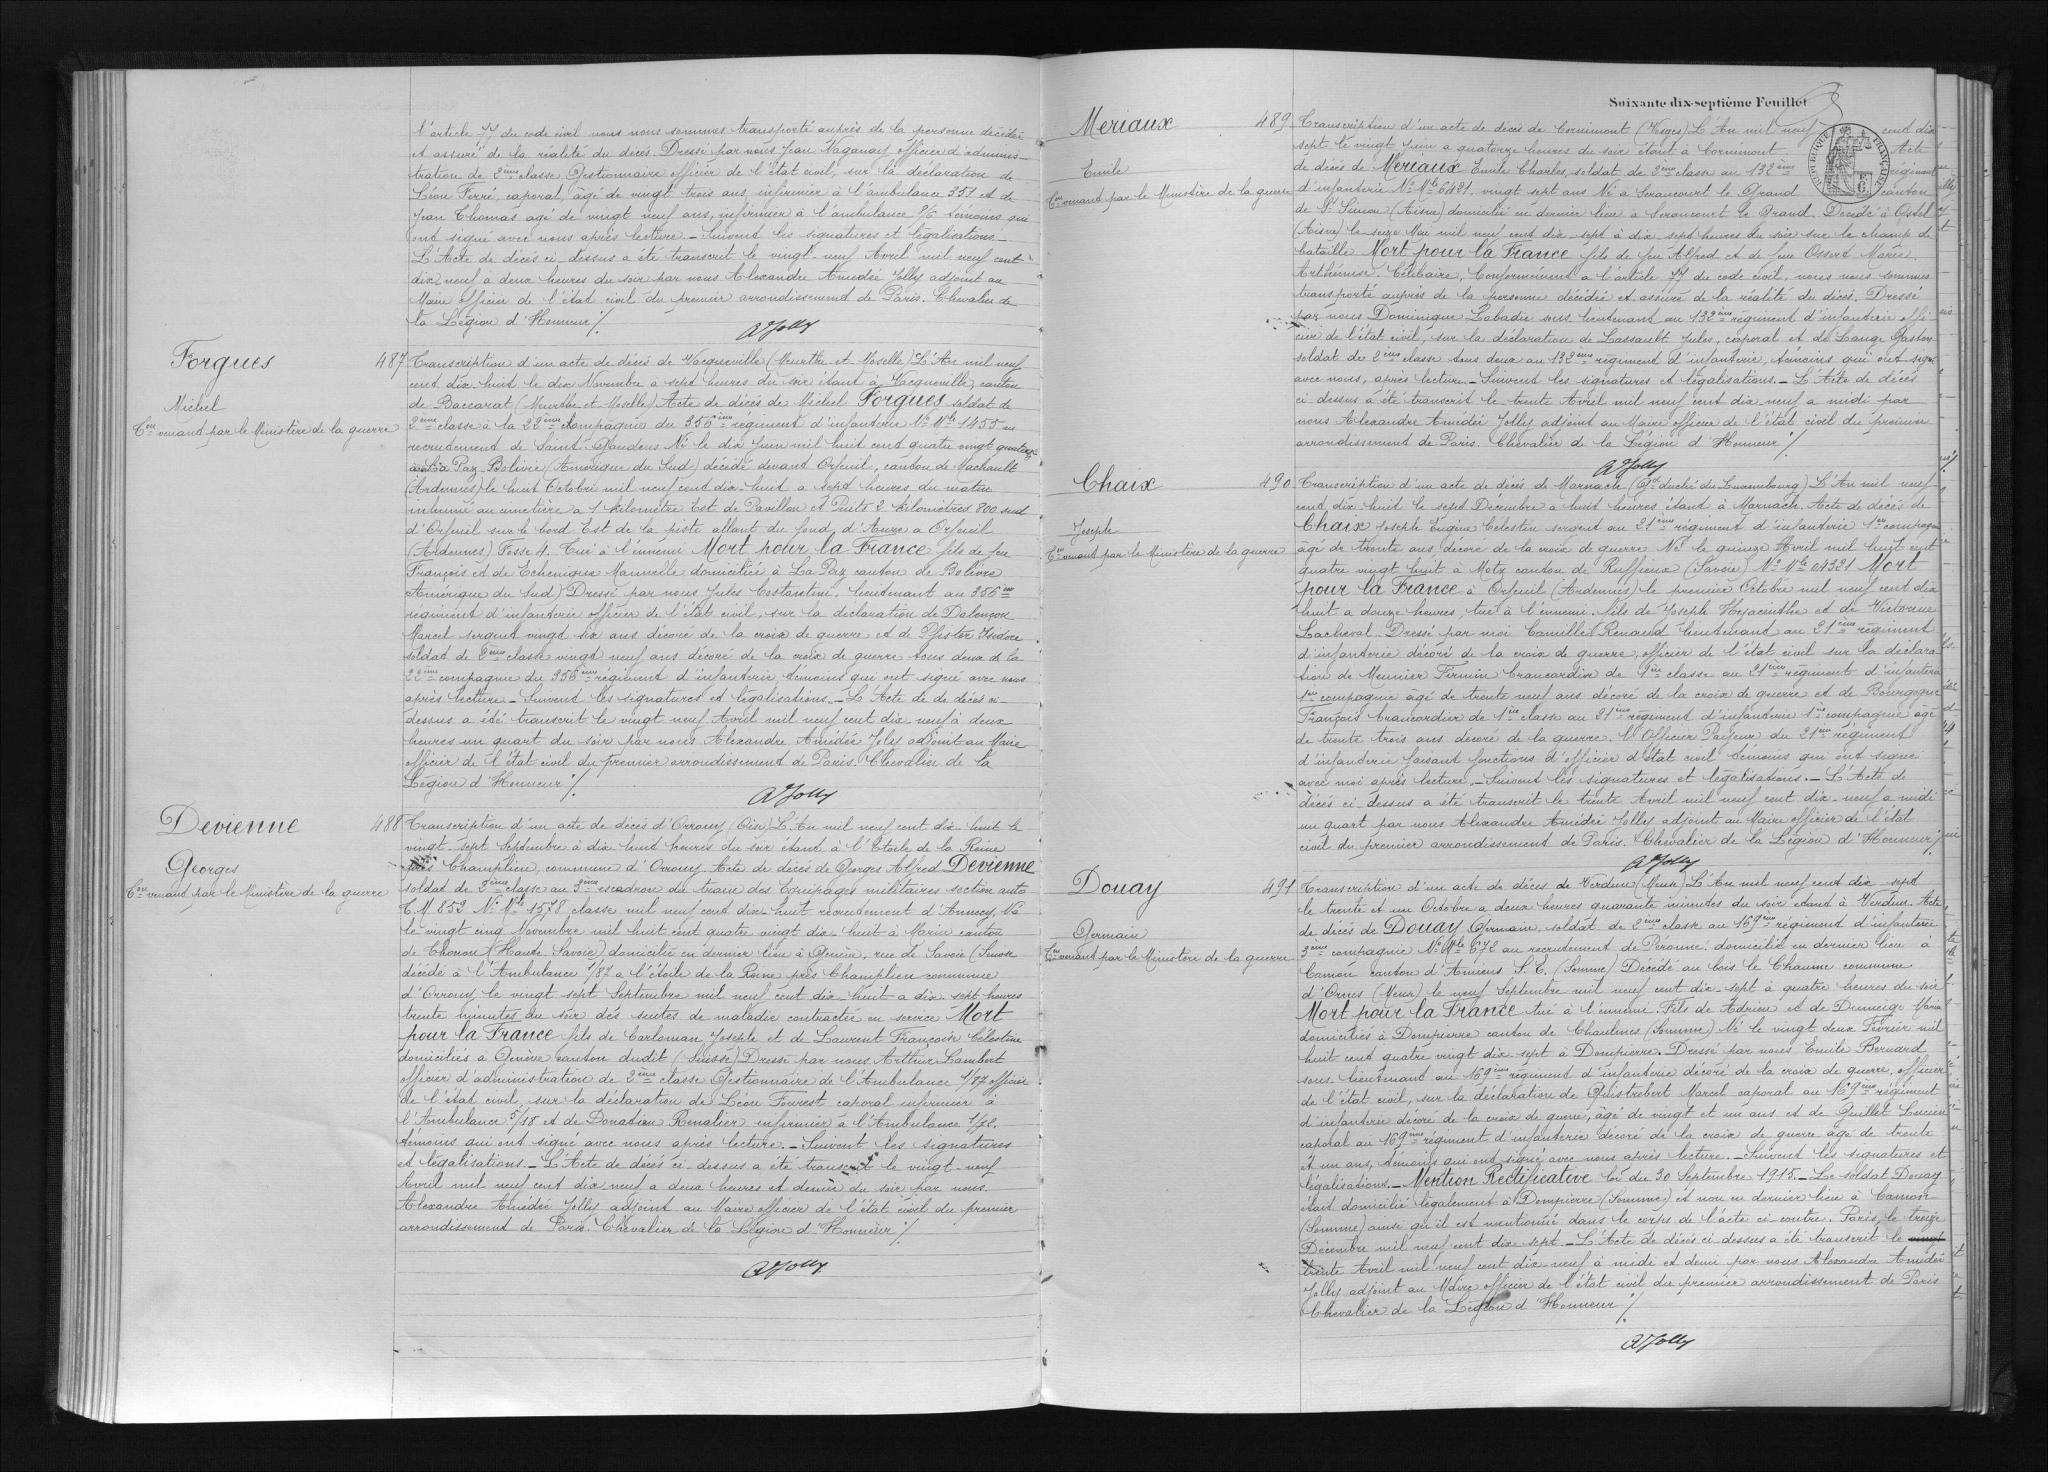 l'article 77 du code civil nous nous sommes transporté auprès de la personne décédée
et assuré de la réalité du décès. Dressé par nous Jean Naganas, officier d'adminis-
tration de 2ème classe Gestionnaire officier de l'état civil, sur la déclaration de
Léon Ferré, caporal, âgé de vingt trois ans, infirmier à l'ambulance 351 et de
Jean Thomas agé de vingt neuf ans, infirmier à l'ambulance 9/6 témoins qui
ont signé avec nous après lecture. _ Suivent les signatures et légalisations _
L'Acte de décès ci-dessus a été transcrit le vingt-neuf Avril mil neuf cent
dix neuf à deux heures du soir par nous Alexandre Amédée Jolly adjoint au
Maire officier de l'état civil du premier arrondissement de Paris. Chevalier de
la Légion d'Honneur ./.
AJolly
Forgues
Michel
Con venant par le Ministère de la guerre
487
Transcription d'un acte de décès de Vacqueville (Meurthe et Moselle) L'An mil neuf
cent dix huit le dix Novembre à sept heures du soir étant à Vacqueville, canton
de Baccarat (Meurthe et Moselle) Acte de décès de Michel Forgues soldat de
2ème classe à la 22ème Compagnie du 356ème régiment d'infanterie No Mle 1455 au
recrutement de Saint Gaudens Né le dix Juin mil huit cent quatre vingt quatorze
à La Paz Bolivie (Amérique du Sud) décédé devant Orfeuil, canton de Machault
(Ardennes) le huit Octobre mil neuf cent dix-huit a sept heures du matin
inhumé au cimetière a 1 kilomètre Est de Pavillon et Puits 2 kilomètres 800 sud
d'Orfeuil sur le bord Est de la piste allant du fond d'Aure a Orfeuil
(Ardennes) Fosse 4. Tué à l'ennemi Mort pour la France fils de feu
François et de Echenique Manuelle domiciliée à La Paz canton de Bolivie
Amérique du Sud) Dressé par nous Jules Costantini, lieutenant au 356ème
régiment d'infanterie officier de l'état civil, sur la déclaration de Dalençon
Marcel sergent vingt six ans décoré de la croix de guerre et de Pfister Isidore
soldat de 2ème classe vingt neuf ans décoré de la croix de guerre tous deux de la
22ème compagnie du 356ème régiment d'infanterie, témoins qui ont signé avec nous
après lecture _ Suivent les signatures et légalisations. _ L'Acte de de décès ci-
dessus a été transcrit le vingt neuf Avril mil neuf cent dix neuf à deux
heures un quart du soir par nous Alexandre Amédée Jolly adjoint au Maire
officier de l'état civil du premier arrondissement de Paris. Chevalier de la
Légion d'Honneur ./.
AJolly
Devienne
Georges
Con venant par le Ministère de la guerre
488
Transcription d'un acte de décès d'Orrouy (Oise) L'An mil neuf cent dix-huit le
vingt-sept Septembre à dix huit heures du soir étant à l'Etoile de la Reine
près Champlieu, commune d'Orrouy. Acte de décès de Georges Alfred Devienne
soldat de 2ème classe au 3ème escadron du train des Equipages militaires section auto
T. M 852 No Mle 1578 classe mil neuf cent dix-huit recrutement d'Annecy, Né
le vingt cinq Novembre mil huit cent quatre vingt dix-huit à Marin canton
de Thonon (Haute Savoie) domicilié en dernier lieu à Genève, rue de Savoie (Suisse
décédé à l'Ambulance 1/87 a l'étoile de la Reine près Champlieu commune
d'Orrouy le vingt sept Septembre mil neuf cent dix-huit a dix-sept heures
trente minutes du soir des suites de maladie contractée en service Mort
pour la France fils de Carloman Joseph et de Laurent Françoise Célestine
domiciliés à Genève canton dudit (Suisse) Dressé par nous Arthur Lambert
officier d'administration de 2ème classe Gestionnaire de l'Ambulance 1/87 officier
de l'état civil, sur la déclaration de Léon Fourest caporal infirmier à
l'Ambulance 5/18 et de Donatien Renalier infirmier à l'Ambulance 1/72.
témoins qui ont signé avec nous après lecture. _ Suivent les signatures
et légalisations. _ L'Acte de décès ci-dessus a été transcrit le vingt-neuf
Avril mil neuf cent dix neuf a deux heures et demie du soir par nous
Alexandre Amédée Jolly adjoint au Maire officier de l'état civil du premier
arrondissement de Paris. Chevalier de la Légion d'Honneur ./.
AJolly
Soixante-dix-septième Feuillet
RÉPUBLIQUE FRANÇAISE
Meriaux
Emile
Con venant par le Ministère de la guerre
489
Transcription d'un acte de décès de Cornimont (Vosges) L'An mil neuf cent dix
sept le vingt Juin a quatorze heures du soir étant à Cornimont. Acte
de décès de Meriaux Emile Charles, soldat de 2ème classe au 132ème régiment
d'infanterie No Mle 6421, vingt sept ans Né a Seraucourt le Grand canton
de St Simon (Aisne) domicilié en dernier lieu à Seraucourt le Grand. Décédé à Ostel
(Aisne) le seize Mai mil neuf cent dix-sept à dix-sept heures du soir sur le champ de
bataille Mort pour la France fils de feu Alfred et de feu Ossert Marie
Arthémise. Célibaire, Conformément a l'article 77 du code civil, nous nous sommes
transporté auprès de la personne décédée et assuré de la réalité du décès. Dressé
par nous Dominique Labadie sous lieutenant au 132ème régiment d'infanterie offi-
cier de l'état civil, sur la déclaration de Lassault Jules, caporal et de Lange Gaston
soldat de 2ème classe tous deux au 132ème régiment d'infanterie, témoins qui ont signé
avec nous, après lecture. _ Suivent les signatures et légalisations. _ L'Acte de décès
ci-dessus a été transcrit le trente Avril mil neuf cent dix-neuf a midi par
nous Alexandre Amédée Jolly adjoint au Maire officier de l'état civil du premier
arrondissement de Paris. Chevalier de la Légion d'Honneur ./.
AJolly
Chaix
Joseph
Con venant par le Ministère de la guerre
490
Transcription d'un acte de décès de Marnach (Gd duché du Luxembourg) L'An mil neuf
cent dix huit le sept Décembre a huit heures, étant à Marnach. Acte de décès de
Chaix Joseph Eugène Célestin sergent au 21ème régiment d'infanterie 1ère compagnie
âgé de trente ans, décoré de la croix de guerre Né le quinze Avril mil huit cent
quatre vingt huit à Motz canton de Ruffieux (Savoie) No Mle 04321 Mort
pour la France à Orfeuil (Ardennes) le premier Octobre mil neuf cent dix
huit a douze heures, tué à l'ennemi. Fils de Joseph Hyacinthe et de Victorine
Lacheval. Dressé par moi Camille Renaud lieutenant au 21ème régiment
d'infanterie décoré de la croix de guerre, officier de l'état civil sur la déclara
tion de Meunier Firmin brancardier de 1ère classe au 21ème régiment d'infanterie
1ère compagnie âgé de trente neuf ans décoré de la croix de guerre et de Bourgogne
François brancardier de 1ère classe au 21ème régiment d'infanterie 1ère compagnie âgé
de trente trois ans décoré de la guerre. l'Officier Payeur du 21ème régiment
d'infanterie faisant fonctions d'officier d'état civil témoins qui ont signé
avec moi après lecture. _ Suivent les signatures et légalisations. _ L'Acte de
décès ci-dessus a été transcrit le trente Avril mil neuf cent dix-neuf a midi
un quart par nous Alexandre Amédée Jolly adjoint au Maire officier de l'état
civil du premier arrondissement de Paris. Chevalier de la Légion d'Honneur ./.
AJolly
Douay
Germain
Con venant par le Ministère de la guerre
491
Transcription d'un acte de décès de Verdun (Meuse) L'An mil neuf cent dix-sept
le trente et un Octobre a deux heures quarante minutes du soir étant à Verdun. Acte
de décès de Douay Germain, soldat de 2ème classe au 169ème régiment d'infanterie
3ème compagnie No Mle 672 au recrutement de Peronne. domicilié en dernier lieu à
Camon canton d'Amiens S. E. (Somme) Décédé au bois le Chaume commune
d'Ornes (Meuse) le neuf Septembre mil neuf cent dix-sept à quatre heures du soir
Mort pour la France tué à l'ennemi. Fils de Adrien et de Demeige Maria
domiciliés à Dompierre canton de Chaulnes (Somme) Né le vingt deux Février mil
huit cent quatre vingt dix-sept à Dompierre. Dressé par nous Emile Bernard
sous lieutenant au 169ème régiment d'infanterie décoré de la croix de guerre, officier
de l'état civil, sur la déclaration de Quistrebert Marcel caporal au 169ème régiment
d'infanterie décoré de la croix de guerre, âgé de vingt et un ans et de Guillet Lucien
caporal au 169ème régiment d'infanterie décoré de la croix de guerre âgé de trente
et un ans, témoins qui ont signé avec nous après lecture. _ Suivent les signatures et
légalisations. _ Mention Rectificative Loi du 30 Septembre 1915. _ Le soldat Douay
était domicilié légalement à Dompierre (Somme) et non en dernier lieu à Camon
(Somme) ainsi qu'il est mentionné dans le corps de l'acte ci-contre. Paris, le treize
Décembre mil neuf cent dix sept. _ L'Acte de décès ci-dessus a été transcrit le vingt
trente Avril mil neuf cent dix-neuf à midi et demi par nous Alexandre Amédée
Jolly adjoint au Maire officier de l'état civil du premier arrondissement de Paris
Chevalier de la Légion d'Honneur ./.
AJolly